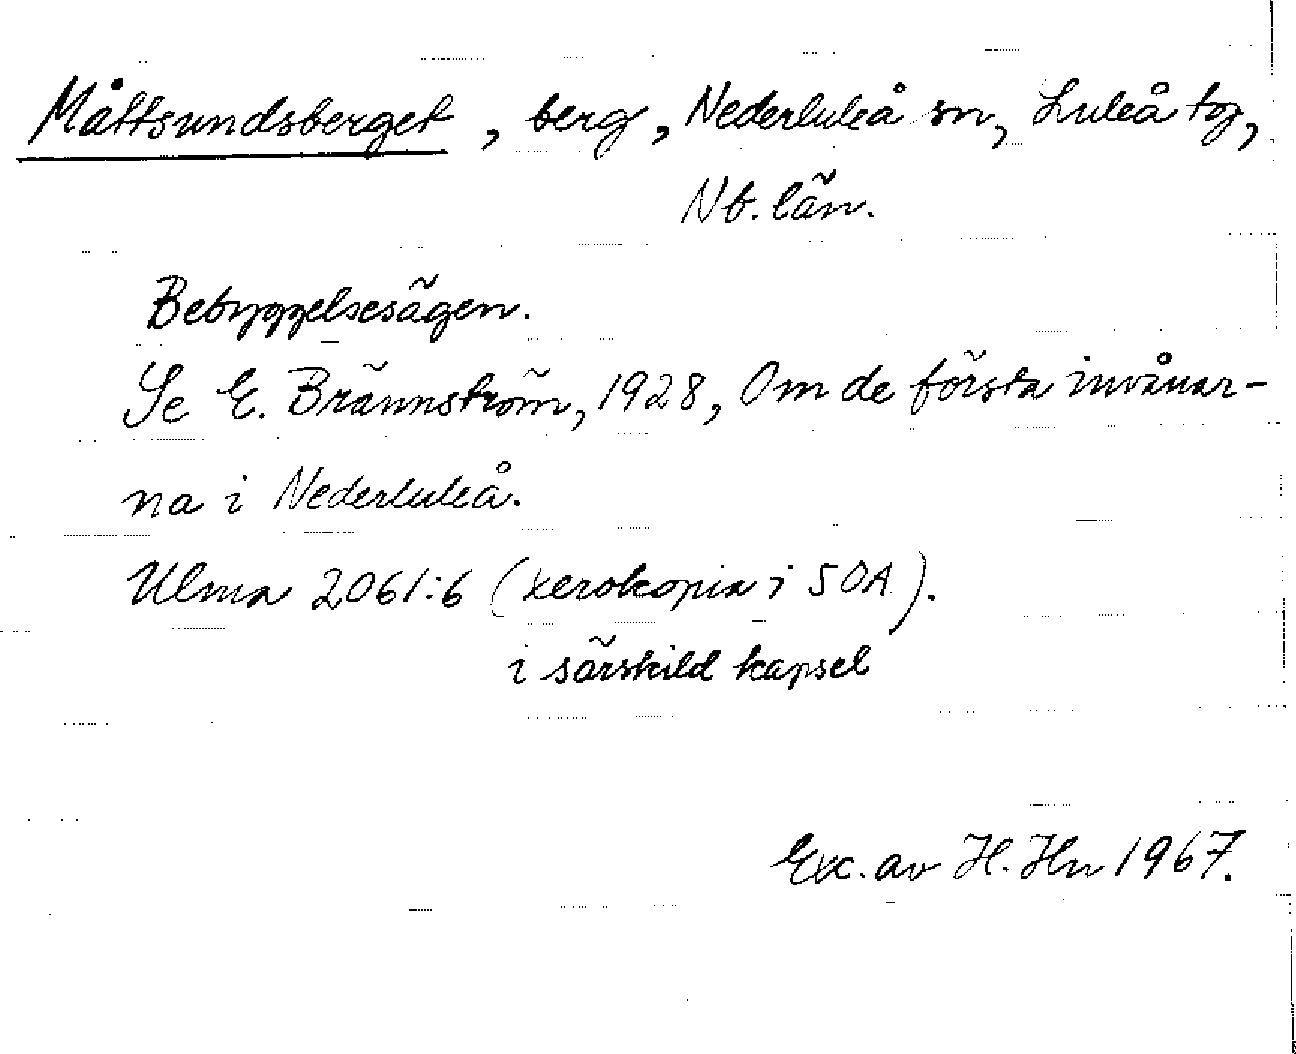 Måttsundsberget, berg, Nederluleå sn, Luleå tg,
Nb. län.
Bebyggelsesägen.
Se E. Brännström, 1928, Om de första invånar-
na i Nederluleå.
Ulma 2061:6 (xerokopia i SOA).
i särskild kapsel
Exc. av H. Hn 1967.